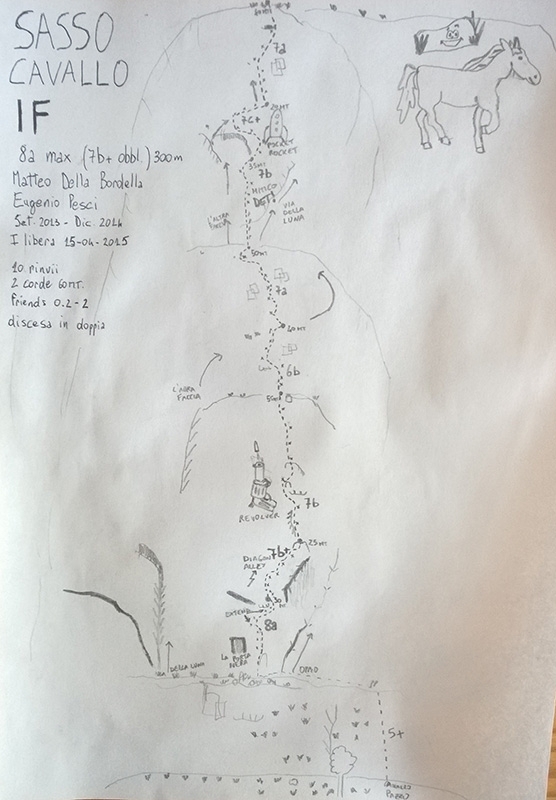 SASSO
CAVALLO
IF
8a max (7b+ obbl.) 300m
Matteo Della Bordella
Eugenio Pesci
Set. 2013 - Dic. 2014
I libera 15-04-2015
10 rinvii
2 corde 60mt.
Friends 0.2-2
discesa in doppia
7a
7C+
POCKET
ROCKET
35MT
7b
MITICO
DGT!
L'ALTRA
FACCIA
VIA
DELLA
LUNA
50MT
7a
40MT
6b
L'ALTRA
FACCIA
7b
REVOLVER
25MT
7b+
DIAGON
ALLEY
8a
LA PORTA
NERA
VIA DELLA LUNA
5+